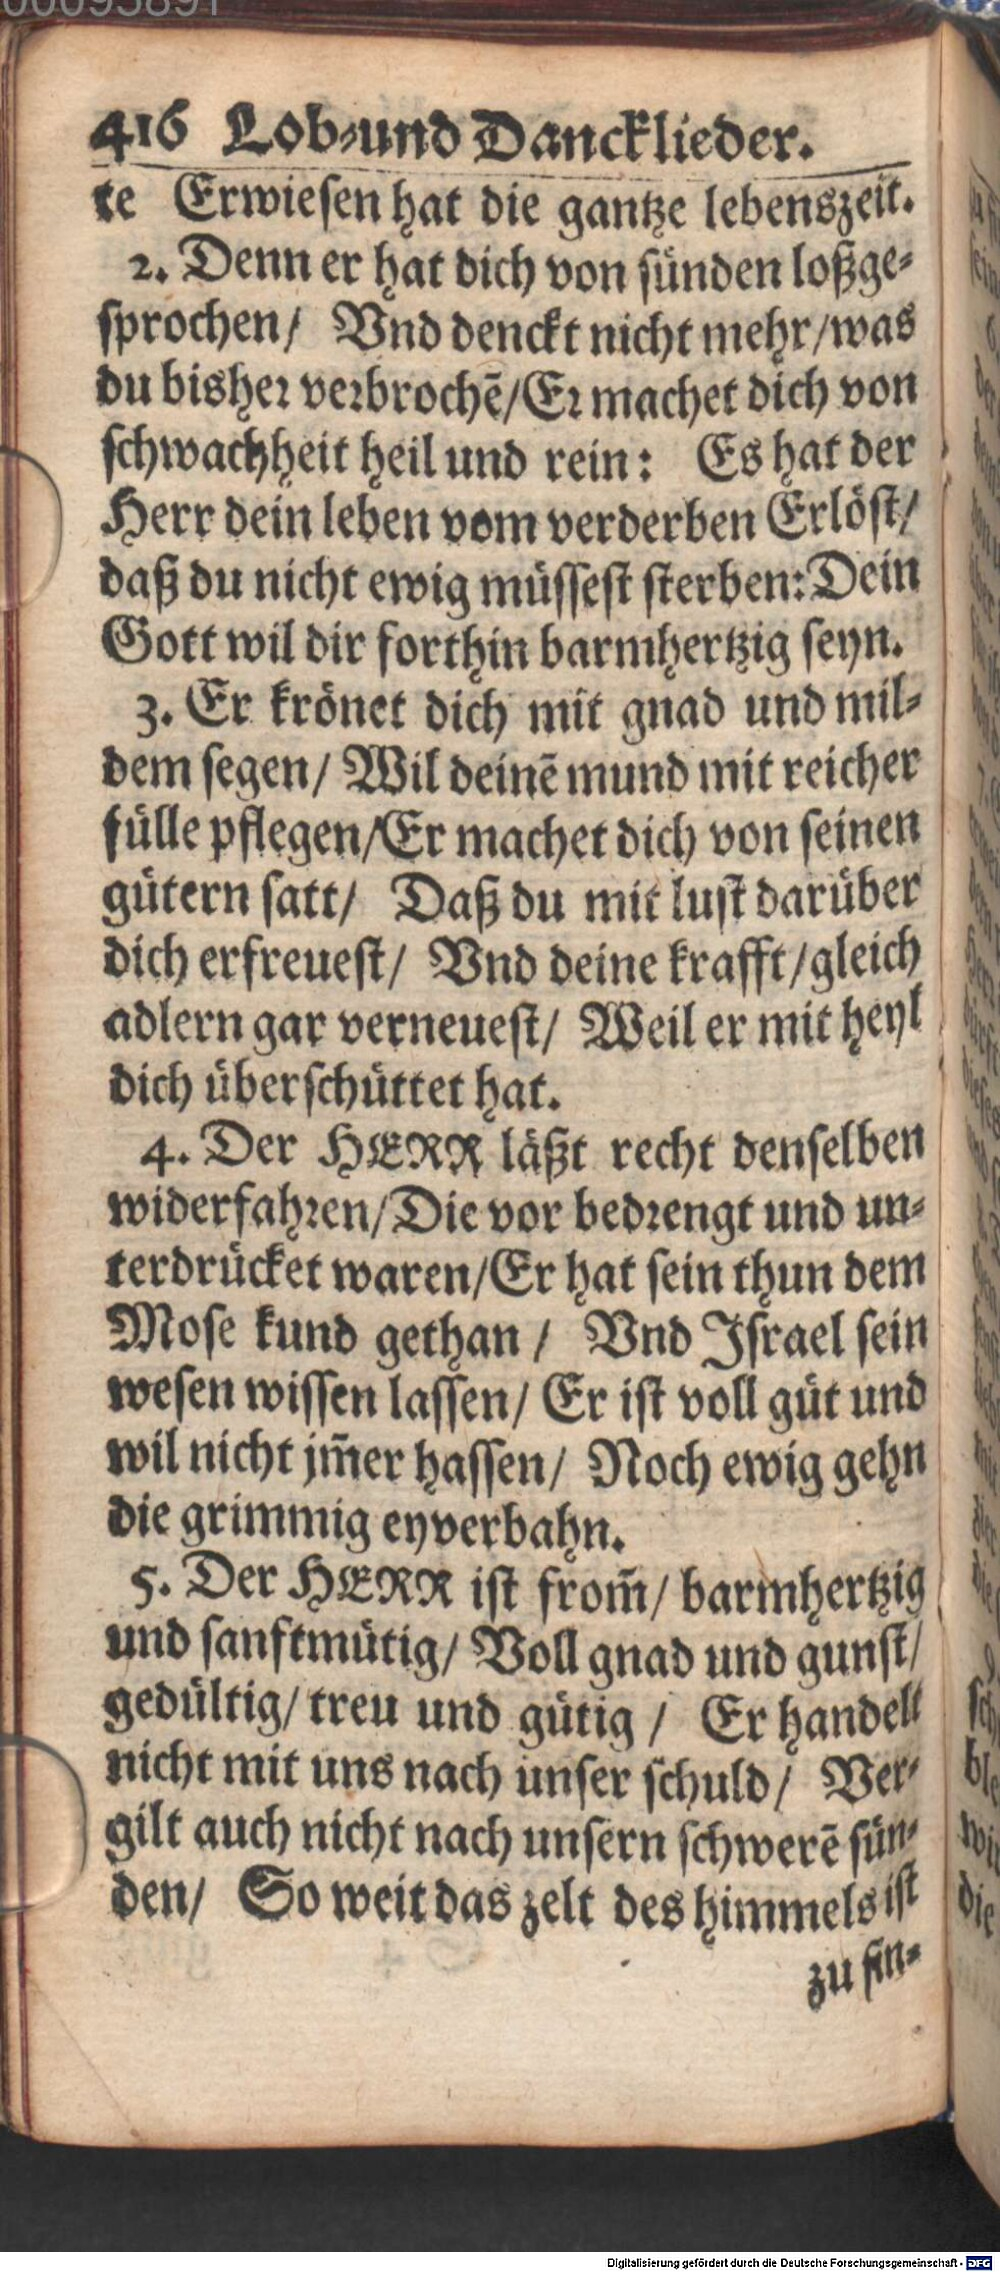 416 Lob-und Dancklieder.
te Erwiesen hat die gantze lebenszeit.
2. Denn er hat dich von sünden loßge-
sprochen/ Vnd denckt nicht mehr/was
du bisher verbrochē/Er machet dich von
schwachheit heil und rein: Es hat der
Herr dein leben vom verderben Erlöst/
daß du nicht ewig müssest sterben: Dein
Gott wil dir forthin barmhertzig seyn.
3. Er krönet dich mit gnad und mil-
dem segen/ Wil deinē mund mit reicher
fülle pflegen/Er machet dich von seinen
gütern satt/ Daß du mit lust darüber
dich erfreuest/ Vnd deine krafft/gleich
adlern gar verneuest/ Weil er mit heyl
dich überschüttet hat.
4. Der HERR läßt recht denselben
widerfahren/Die vor bedrengt und un-
terdrücket waren/Er hat sein thun dem
Mose kund gethan/ Vnd Israel sein
wesen wissen lassen/ Er ist voll güt und
wil nicht jm̄er hassen/ Noch ewig gehn
die grimmig eyverbahn.
5. Der HERR ist from̄/ barmhertzig
und sanftmütig/ Voll gnad und gunst/
gedültig/ treu und gütig/ Er handelt
nicht mit uns nach unser schuld/ Ver-
gilt auch nicht nach unsern schwerē sün-
den/ So weit das zelt des himmels ist
zu fin-
Digitalisierung gefördert durch die Deutsche Forschungsgemeinschaft - DFG